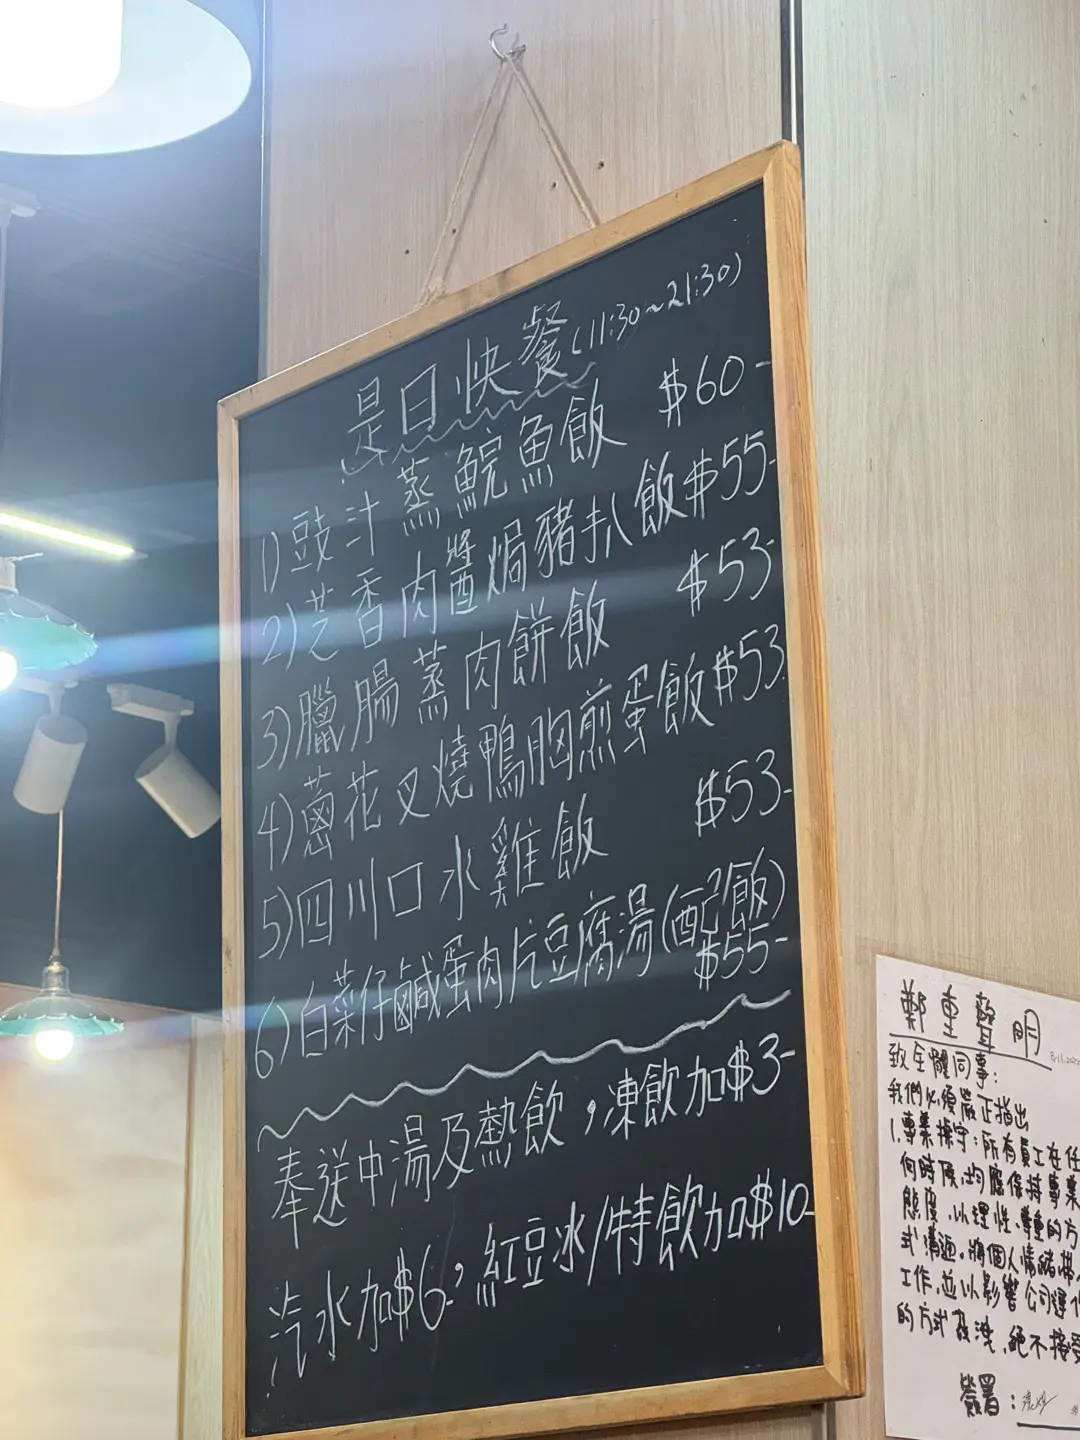 是日快餐(11:30~21:30)
1)豉汁蒸鯇魚飯 $60-
2)芝香肉醬焗豬扒飯$55-
3)臘腸蒸肉餅飯 $53-
4)蔥花叉燒鴨胸煎蛋飯$53
5)四川口水雞飯 $53-
6)白菜仔鹹蛋肉片豆腐湯(配飯)
$55-
奉送中湯及熱飲，凍飲加$3-
汽水加$6，紅豆冰/特飲加$10-
鄭重聲明
致全體同事:
我們必須嚴正指出
1.專業操守:所有員工在任
何時候,均應保持專業
態度,以理性、尊重的方
式溝通。將個人情緒帶
工作,並以影響公司運作
的方式發洩,絕不接受
簽署: